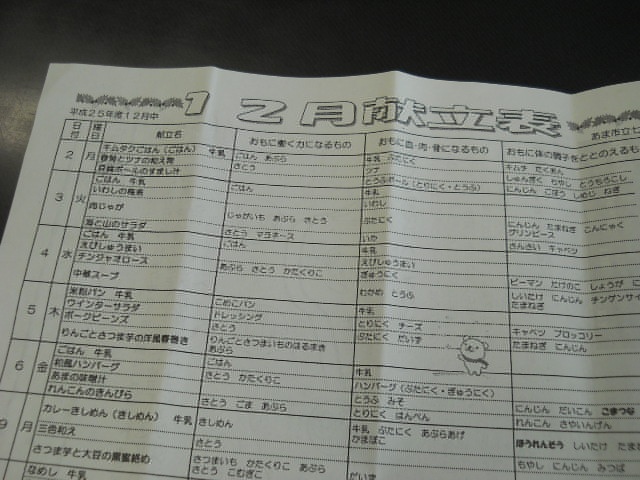 12月献立表
平成25年度12月中
あま市立七
日付 曜日 献立名 おもに働く力になるもの おもに血・肉・骨になるもの おもに体の調子をととのえるも
2 月 キムタクごはん(ごはん) 牛乳 ごはん あぶら 牛乳 ぶたにく キムチ たくあん
春雨とツナの和え物 さとう ツナ しゅんぎく もやし とうもろこし
豆腐ボールのすまし汁 とうふボール(とりにく・とうふ) にんじん ごぼう しめじ ねぎ
3 火 ごはん 牛乳 ごはん 牛乳
いわしの梅煮 いわし
肉じゃが じゃがいも あぶら さとう ぶたにく にんじん たまねぎ こんにゃく
グリンピース
海と山のサラダ さとう マヨネーズ いか さんさい キャベツ
4 水 ごはん 牛乳 ごはん 牛乳
えびしゅうまい えびしゅうまい
チンジャオロース あぶら さとう かたくりこ ぎゅうにく ピーマン たけのこ しょうが に
中華スープ わかめ とうふ しいたけ にんじん チンゲンサイ
たまねぎ
5 木 米粉パン 牛乳 こめこパン 牛乳
ウインターサラダ ドレッシング とりにく チーズ キャベツ ブロッコリー
ポークビーンズ さとう ぶたにく だいず たまねぎ にんじん
りんごとさつま芋の洋風春巻き りんごとさつまいものはるまき
あぶら
6 金 ごはん 牛乳 ごはん 牛乳
和風ハンバーグ さとう かたくりこ ハンバーグ(ぶたにく・ぎゅうにく)
あまの味噌汁 とうふ みそ にんじん だいこん こまつな
れんこんのきんぴら さとう ごま あぶら とりにく はんぺん れんこん さやいんげん
9 月 カレーきしめん(きしめん) 牛乳 きしめん 牛乳 ぶたにく あぶらあげ
かまぼこ
ほうれんそう しいたけ たまね
三色和え さとう もやし にんじん みつば
さつま芋と大豆の黒蜜絡め さつまいも かたくりこ あぶら
さとう こむぎこ だいず
なめし 牛乳